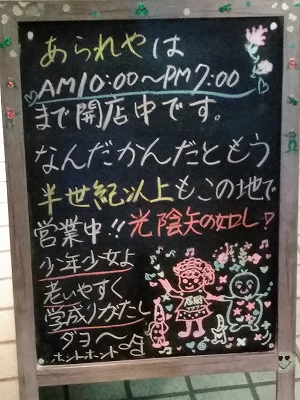 あられやは
AM10:00〜PM7:00
まで開店中です。
なんだかんだともう
半世紀以上もこの地で
営業中!! 光陰矢の如し!
少年少女よ
老いやすく
学成りがたし
ダヨ〜
ホントホント